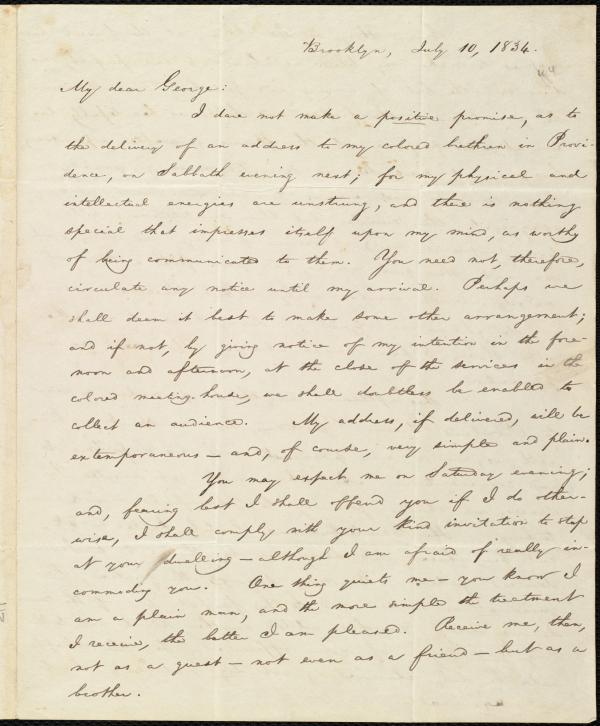 Brooklyn, July 10, 1834.
My dear George:
I dare not make a positive promise, as to
the delivery of an address to my colored brethren in Provi-
dence, on Sabbath evening next; for my physical and
intellectual energies are unstrung, and there is nothing
special that impresses itself upon my mind, as worthy
of being communicated to them. You need not, therefore,
circulate any notice until my arrival. Perhaps we
shall deem it best to make some other arrangement;
and if not, by giving notice of my intention in the fore-
noon and afternoon, at the close of the services in the
colored meeting-house, we shall doubtless be enabled to
collect an audience. My address, if delivered, will be
extemporaneous — and, of course, very simple and plain.
You may expect me on Saturday evening;
and, fearing lest I shall offend you if I do other-
wise, I shall comply with your kind invitation to stop
at your dwelling — although I am afraid of really in-
commoding you. One thing quiets me — you know I
am a plain man, and the more simple the treatment
I receive, the better I am pleased. Receive me, then,
not as a guest — not even as a friend — but as a
brother.